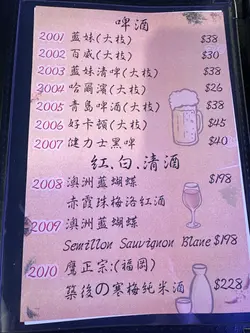 啤酒
2001 藍妹(大枝) $38
2002 百威(大枝) $30
2003 藍妹清啤(大枝) $38
2004 哈爾濱(大枝) $26
2005 青島啤酒(大枝) $38
2006 好卡頓(大枝) $45
2007 健力士黑啤 $40
紅、白、清酒
2008 澳洲藍蝴蝶 $198
赤霞珠梅洛紅酒
2009 澳洲藍蝴蝶
Semillon Sauvignon Blanc $198
2010 鷹正宗:(福岡)
築後の寒梅純米酒 $228